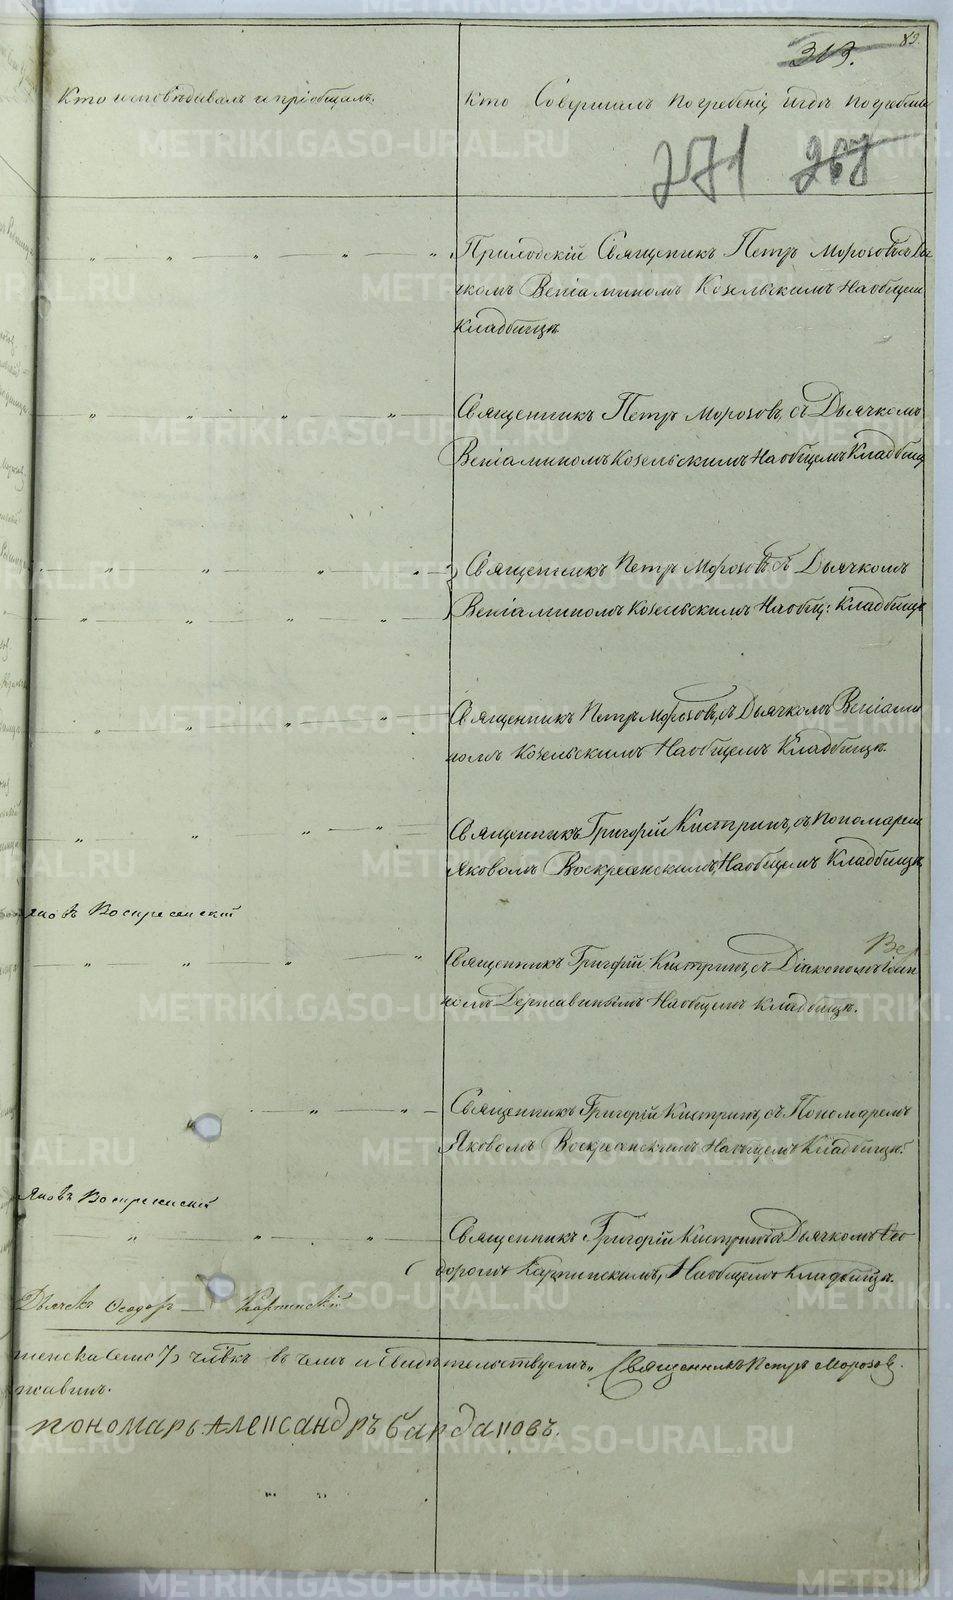 83.
313.
Кто исповѣдывалъ и пріобщалъ.
Кто Совершалъ погребеніе и гдѣ погребли
271 267
Приходскій Священикъ Петръ Морозовъ съ Дья
чкомъ Веніаминомъ Козельскимъ На общем
Кладбищѣ
Священникъ Петръ Морозовъ, съ Дьячкомъ
Веніаминомъ Козельскимъ На общемъ Кладбищ
Священникъ Петръ Морозовъ съ Дьячкомъ
Веніаминомъ Козельскимъ На общ: Кладбищѣ
Священникъ Петръ Морозовъ, съ Дьячкомъ Веніами
номъ Козельскимъ На общемъ Кладбищѣ.
Священникъ Григорій Кистринъ, съ Пономарем
Яковомъ Воскресенскимъ, На общемъ Кладбищѣ
Яковъ Воскресенскій
Священникъ Григорій Кистринъ, съ Діакономъ
Державинымъ На общемъ Кладбищѣ.
Священникъ Григорій Кистринъ, съ Пономаремъ
Яковомъ Воскресенскимъ На общемъ Кладбищѣ.
Яковъ Воскресенскій
Священникъ Григорій Кистринъ съ Дьячкомъ Ѳео
доромъ Карпинскимъ, На общемъ Кладбищѣ.
Дьячекъ Ѳеодоръ Карпинскій
женска челвкъ въ чемъ и Свидѣтельствуемъ Священникъ Петръ Морозов.
жавинъ.
пономарь Александръ Бардаповъ.
METRIKI.GASO-URAL.RU